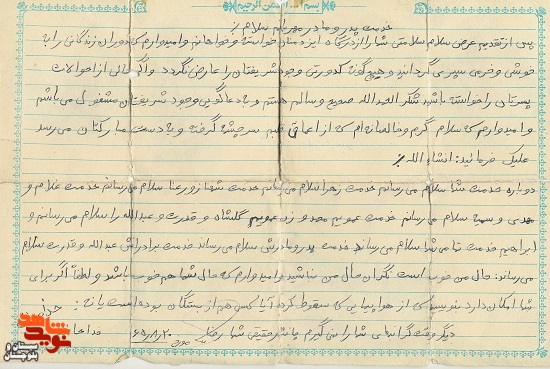 بسم الله الرحمن الرحیم
خدمت پدر و مادر مهربانم سلام
پس از تقدیم عرض سلام سلامتی شما را از درگاه ایزد منان خواسته و خواهانم و امیدوارم که دوران زندگانی را به
خوشی و خرمی سپری گردانید و هیچ گونه کدورتی وجود شریفتان را عارض نگردد و اگر حالی از احوالات
پسرتان را خواسته باشید شکر الحمدالله صحیح و سالم هستم و به دعاگویی وجود شریفتان مشغول می باشم
و امیدوارم که سلام گرم و خالصانه ام که از اعماق قلبم سرچشه گرفته و به دست مبارکتان می رسد
علیک فرمائید: انشاء الله
دوباره خدمت شما سلام می رسانم خدمت زهرا سلام می رسانم خدمت شهناز و رعنا سلام می رسانم خدمت غلام و
مهدی و سمیه سلام می رسانم خدمت عمویم محمد و زن عمویم گلشاه و قدرت و عبدالله را سلام می رسانم و
ابراهیم خدمت تمامی شما سلام می رساند خدمت پدر و مادرش سلام می رساند خدمت برادرانش عبدالله و قدرت سلام
می رساند: حال من خوب است نگران حال من نباشید و امیدوارم که حال شما هم خوب باشد و لطفاً اگر برای
شما امکان دارد بنویسید که از هواپیمایی که سقوط کرده آیا کسی هم از بستگان بوده است یا نه:
دیگر وقت گرانمای شما را نمی گیرم جانشار حقیقی شما ۶۵/۸/۲۰
خدا حافظ
نوید شاهد